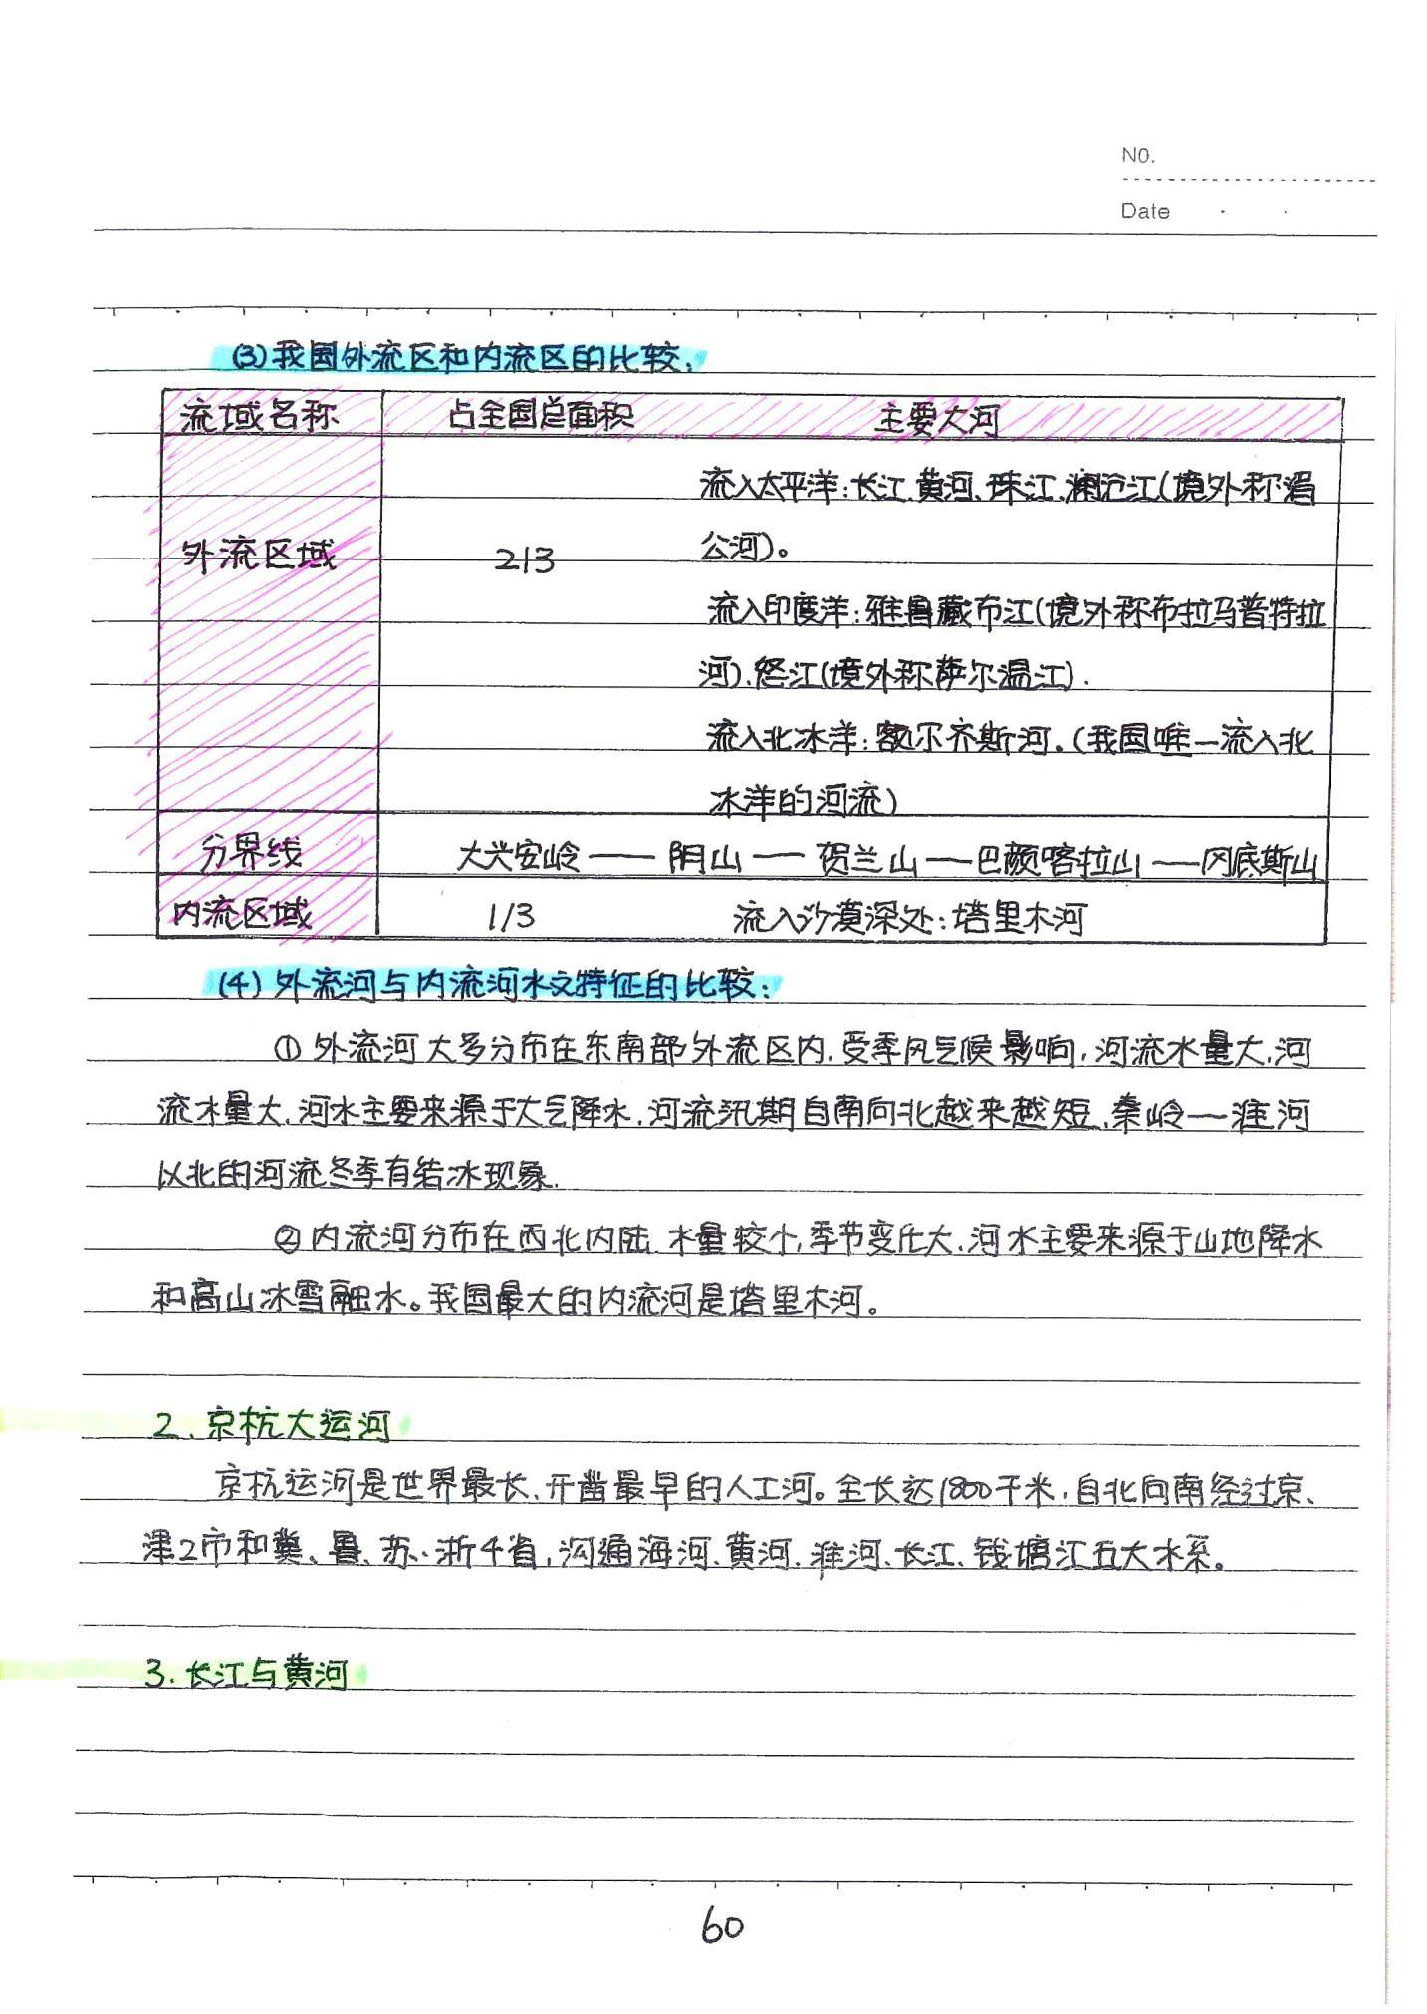 NO.
Date
(3)我国外流区和内流区的比较:
流域名称 占全国总面积 主要大河
流入太平洋:长江、黄河、珠江、澜沧江(境外称湄
外流区域 2/3 公河)。
流入印度洋:雅鲁藏布江(境外称布拉马普特拉
河)、怒江(境外称萨尔温江).
流入北冰洋:额尔齐斯河.(我国唯一流入北
冰洋的河流)
分界线 大兴安岭——阴山——贺兰山—巴颜喀拉山——冈底斯山
内流区域 1/3 流入沙漠深处:塔里木河
(4)外流河与内流河水文特征的比较:
①外流河大多分布在东南部外流区内.受季风气候影响,河流水量大,河
流水量大.河水主要来源于大气降水.河流汛期自南向北越来越短.秦岭—淮河
以北的河流冬季有结冰现象.
②内流河分布在西北内陆.水量较小,季节变化大.河水主要来源于山地降水
和高山冰雪融水。我国最大的内流河是塔里木河。
2.京杭大运河
京杭运河是世界最长、开凿最早的人工河。全长达1800千米,自北向南经过京、
津2市和冀、鲁、苏、浙4省,沟通海河、黄河、淮河、长江、钱塘江五大水系。
3.长江与黄河
60